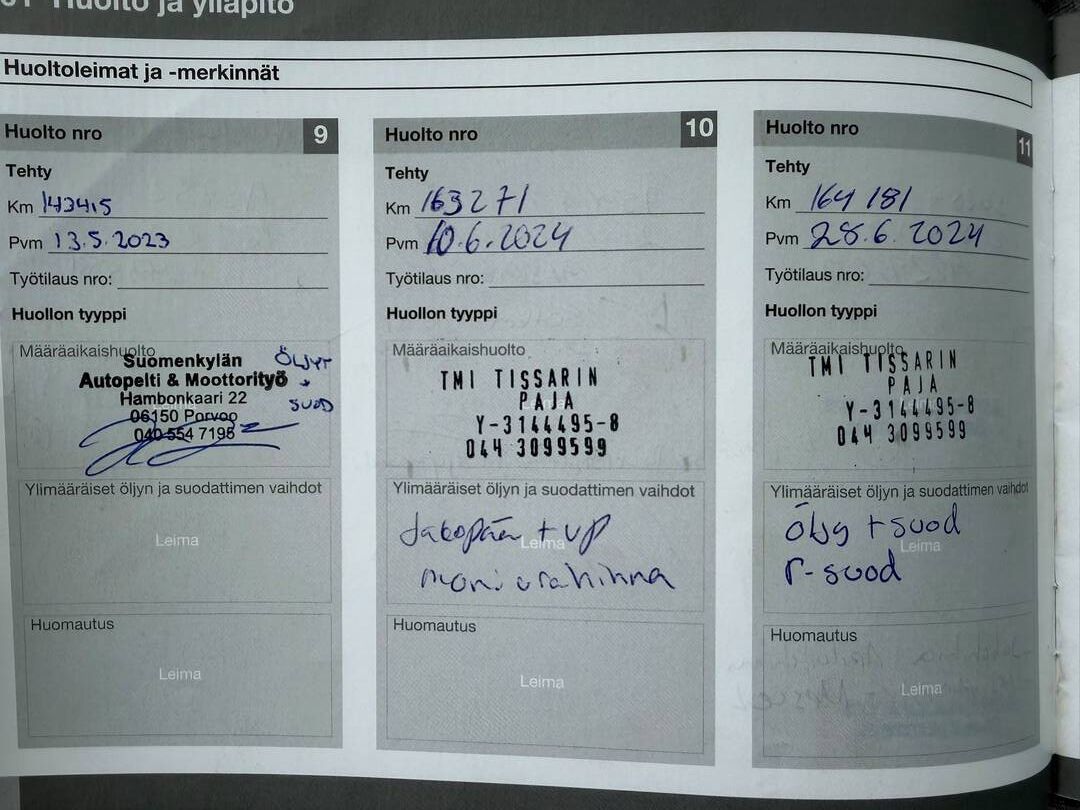 01 Huolto ja ylläpito
Huoltoleimat ja -merkinnät
Huolto nro 9
Tehty
Km 143415
Pvm 13.5.2023
Työtilaus nro:
Huollon tyyppi
Määräaikaishuolto
Suomenkylän
Autopelti & Moottorityö
Hambonkaari 22
06150 Porvoo
040 554 7195
ÖLJYT
+
SUOD
Ylimääräiset öljyn ja suodattimen vaihdot
Leima
Huomautus
Leima
Huolto nro 10
Tehty
Km 163271
Pvm 10.6.2024
Työtilaus nro:
Huollon tyyppi
Määräaikaishuolto
TMI TISSARIN
PAJA
Y-3144495-8
044 3099599
Ylimääräiset öljyn ja suodattimen vaihdot
Jakopään + vp
Leima
moniurahihna
Huomautus
Leima
Huolto nro 11
Tehty
Km 164 181
Pvm 28.6.2024
Työtilaus nro:
Huollon tyyppi
Määräaikaishuolto
TMI TISSARIN
PAJA
Y-3144495-8
044 3099599
Ylimääräiset öljyn ja suodattimen vaihdot
öljy + suod
Leima
r-suod
Huomautus
Leima